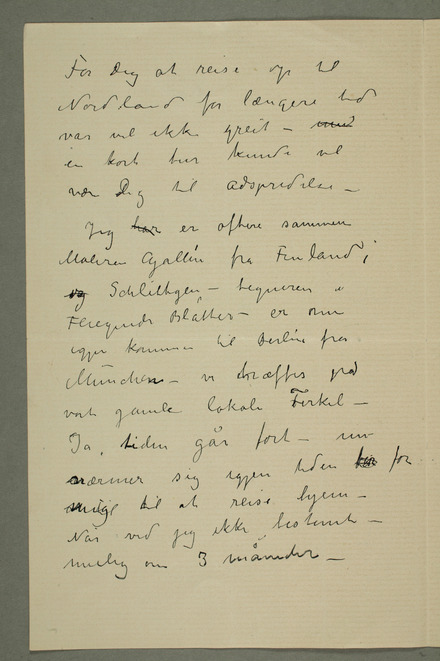 For Dig at reise op til
Nordland for længere tid
var vel ikke greit –
en kort tur kunde vel
være Dig til adspredelse –
Jeg har er oftere sammen
Maleren Gallén fra Finland,
og Schlittgen – tegneren i
Fliegende Blätter – er nu
igjen kommen til Berlin fra
München – vi træffes på
vort gamle lokale Ferkel –
Ja, tiden går fort – nu
nærmer sig igjen tiden for
mig til at reise hjem –
Når ved jeg ikke bestemt –
mulig om 3 måneder –